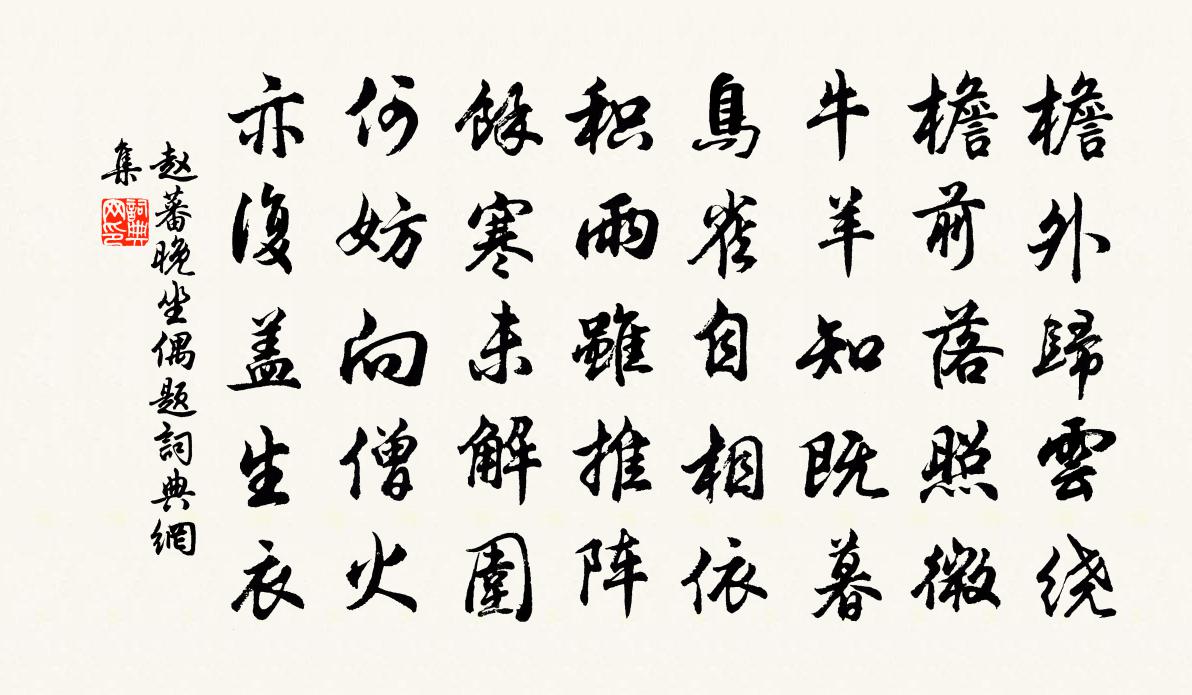 檐外歸雲绕
檐前落照微
牛羊知既暮
鳥雀自相依
积雨雖推阵
餘寒未解圍
何妨向僧火
亦復盖生衣
赵蕃晚坐偶题詞典網
集
詞典网印